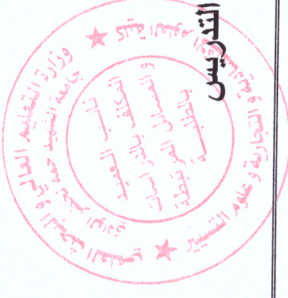 التدريس
وزارة التعليم العالي و البحث العلمي
جامعة الشهيد حمه لخضر الوادي
كلية العلوم الاقتصادية و التجارية و علوم التسيير
نائب العميد
المكلف بالدراسات
و المسائل المرتبطة
بالطلبة